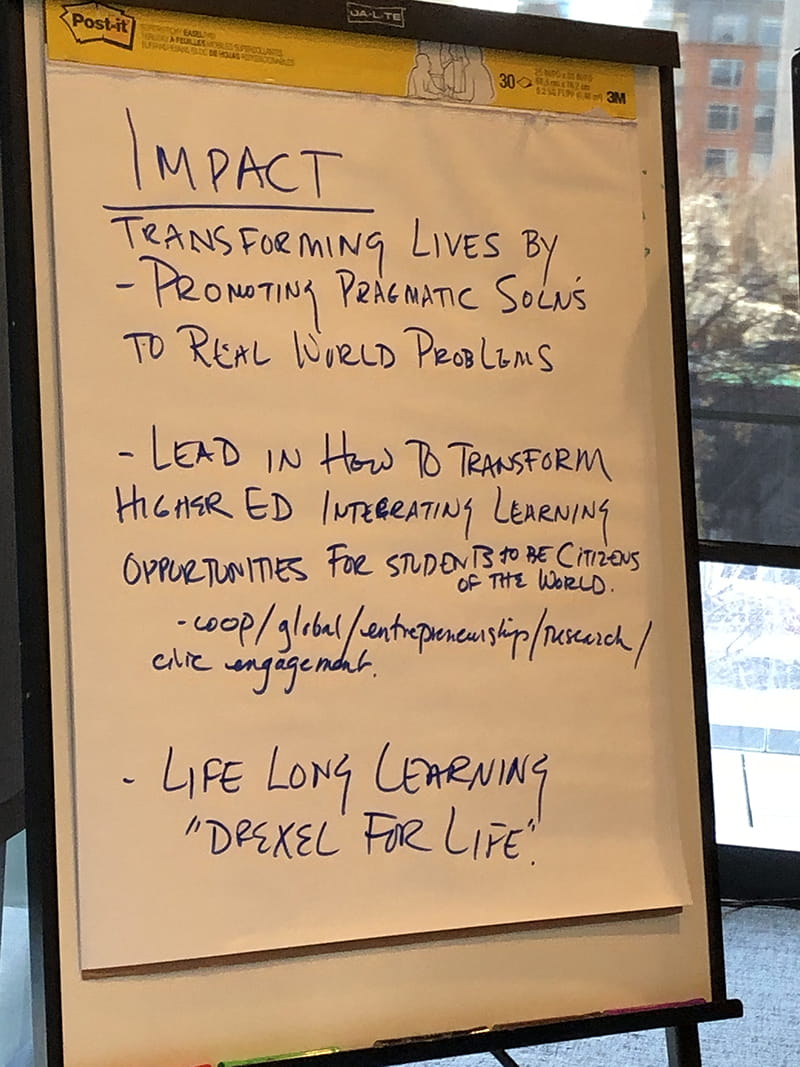 DA-LITE
Post-it
30
3M
IMPACT
TRANSFORMING LIVES BY
- PROMOTING PRAGMATIC SOLNS
TO REAL WORLD PROBLEMS
- LEAD IN HOW TO TRANSFORM
HIGHER ED INTEGRATING LEARNING
OPPORTUNITIES FOR STUDENTS TO BE CITIZENS
OF THE WORLD.
- coop/global/entrepreneurship/research/
civic engagement.
- LIFE LONG LEARNING
"DREXEL FOR LIFE".